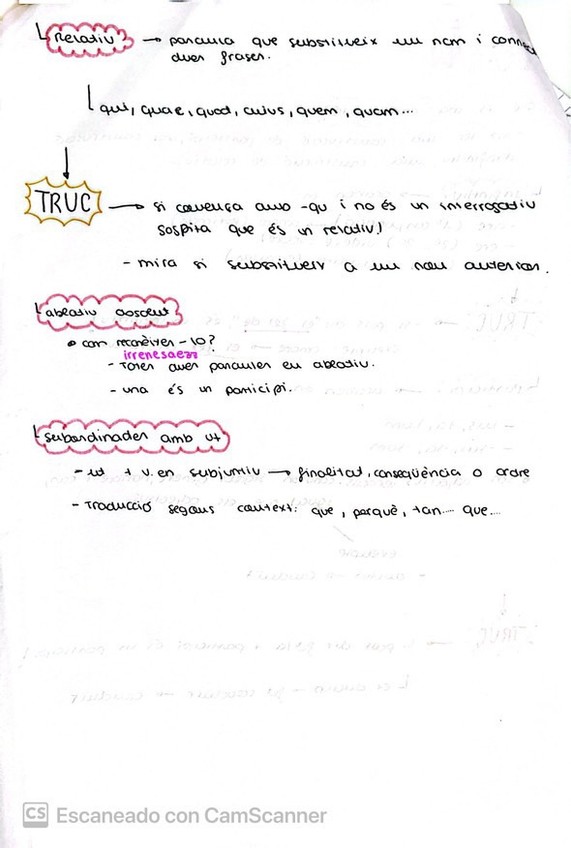 Relatiu → paraula que substitueix un nom i connecta
dues frases.
qui, quae, quod, cuius, quem, quam...
TRUC → si comença amb -qu i no és un interrogatiu
sospita que és un relatiu!
- mira si substitueix a un nou anterior.
ablatiu absolut
• com reconèixer-lo?
irrenesaezz
- Totes dues paraules en ablatiu.
- una és un participi.
subordinades amb ut
- ut + v. en subjuntiu → finalitat, conseqüència o ordre
- Traducció segons context: que, perquè, tan... que...
CS Escaneado con CamScanner